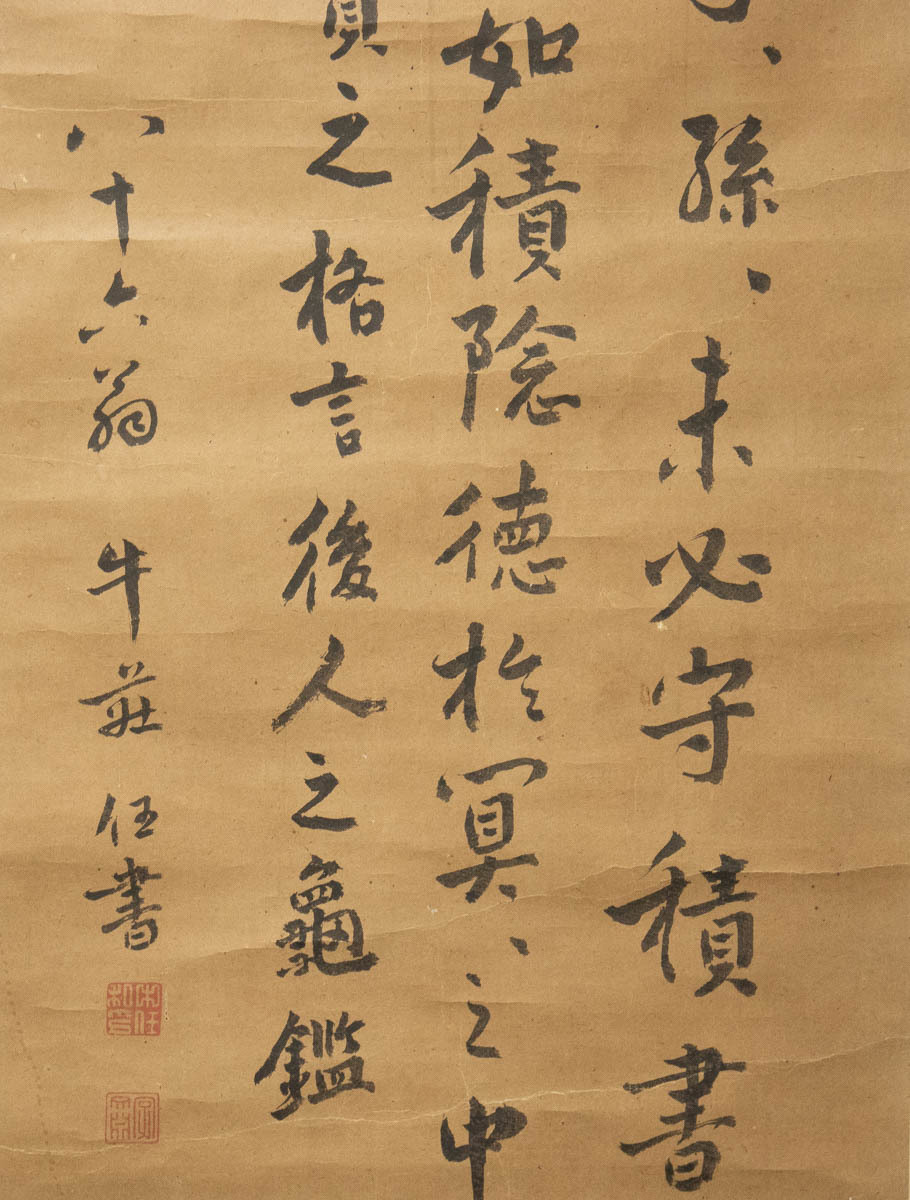 、孫、未必守積書
如積陰德於冥、之中
之格言後人之龜鑑
八十六翁 牛莊任書